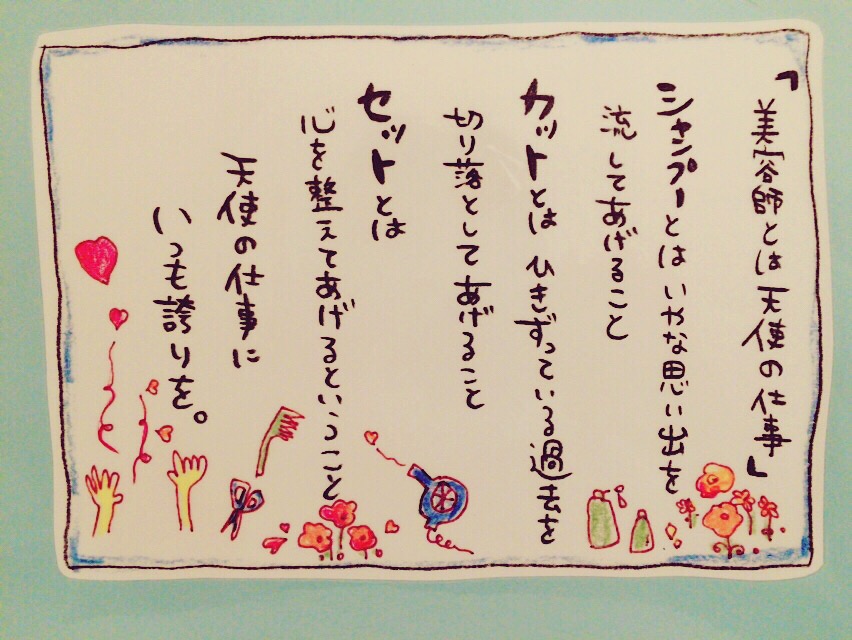 「美容師とは天使の仕事」
シャンプーとはいやな思い出を
流してあげること
カットとはひきずっている過去を
切り落としてあげること
セットとは
心を整えてあげるということ
天使の仕事に
いつも誇りを。